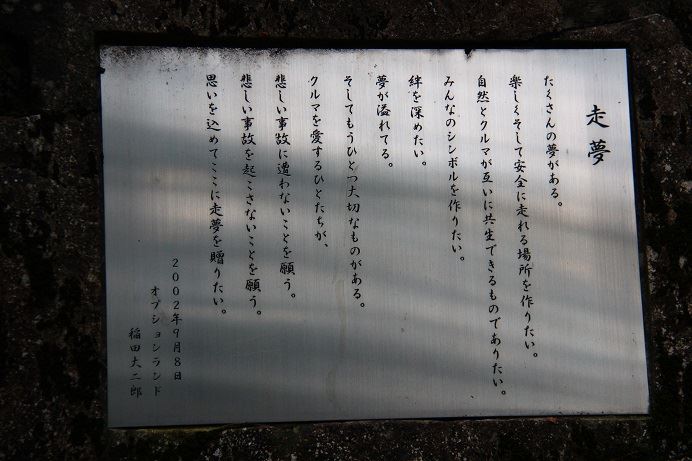 走夢
たくさんの夢がある。
楽しくそして安全に走れる場所を作りたい。
自然とクルマが互いに共生できるものでありたい。
みんなのシンボルを作りたい。
絆を深めたい。
夢が溢れてる。
そしてもうひとつ大切なものがある。
クルマを愛するひとたちが、
悲しい事故に遭わないことを願う。
悲しい事故を起こさないことを願う。
思いを込めてここに走夢を贈りたい。
2002年9月8日
オプションランド
稲田大二郎